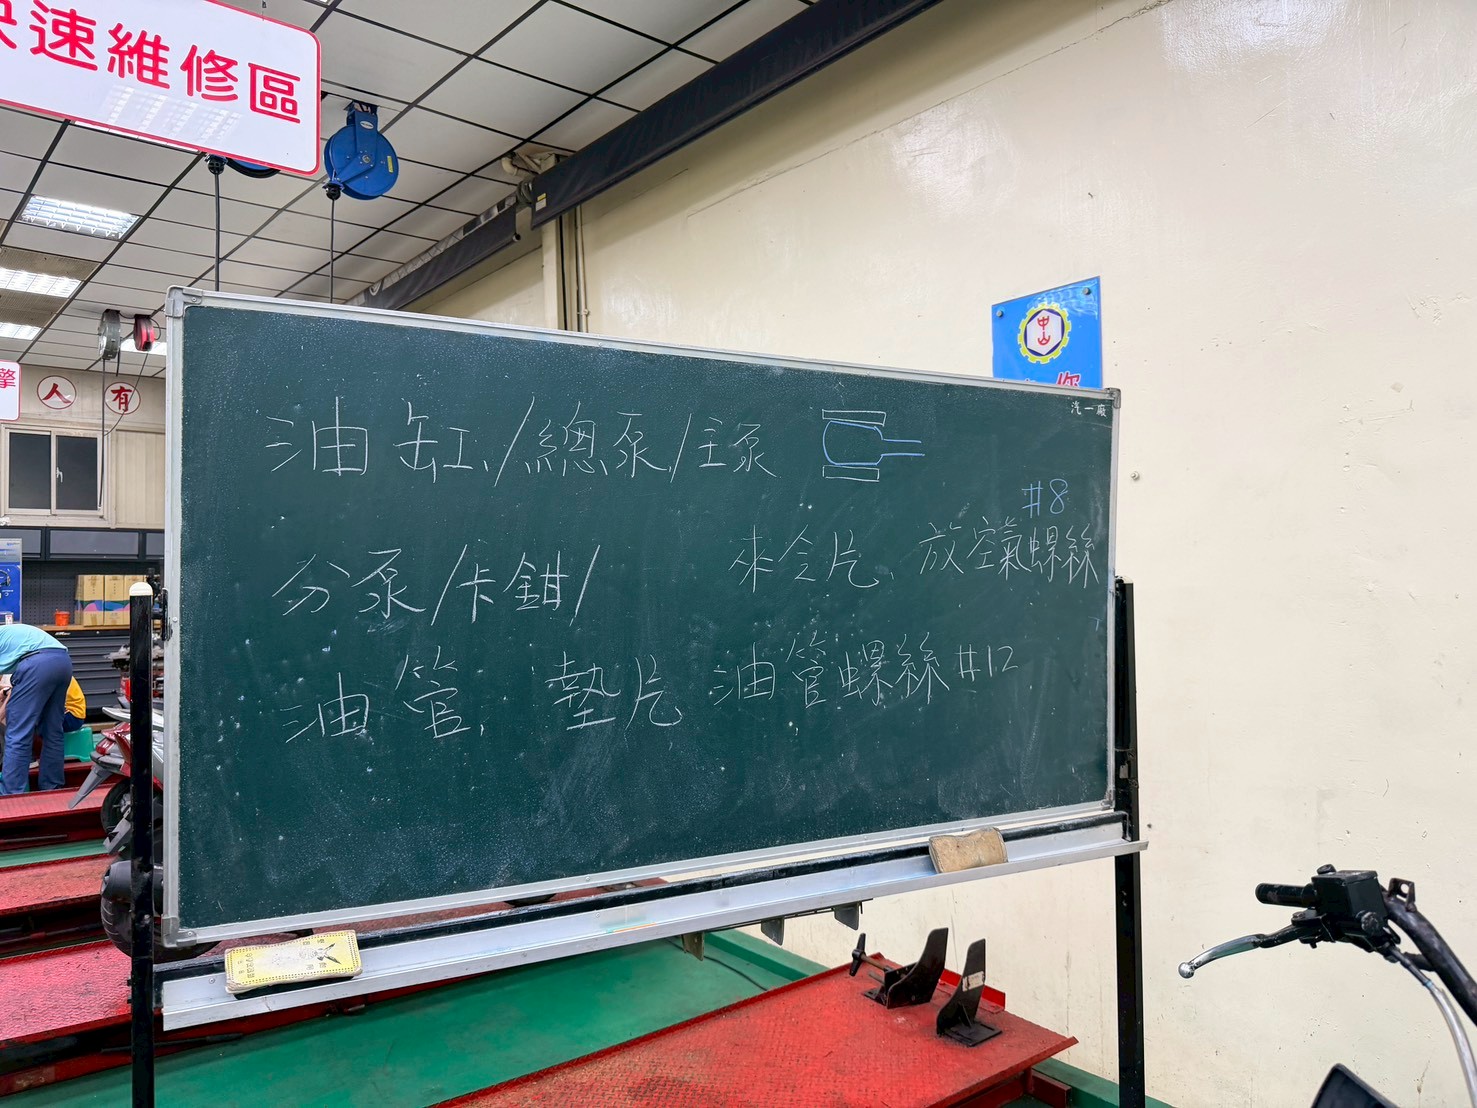 速維修區
擎
人有
中山
汽一廠
油缸/總泵/主泵
#8
分泵/卡鉗/ 來令片、放空氣螺絲
油管、墊片 油管螺絲#12